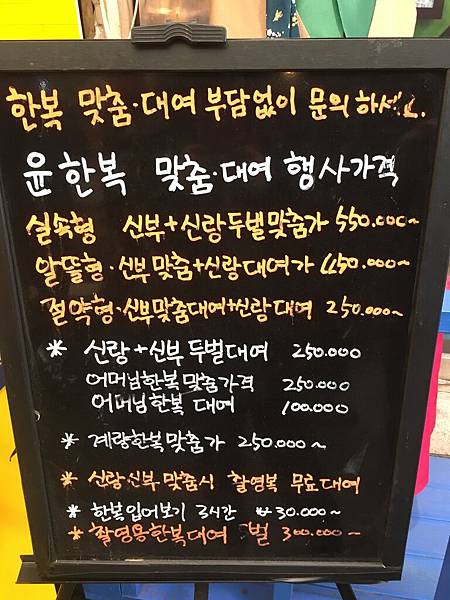 한복 맞춤·대여 부담없이 문의 하세요.
윤한복 맞춤·대여 행사가격
실속형 신부+신랑두벌맞춤가 550.000~
알뜰형·신부맞춤+신랑대여가 450.000~
절약형·신부맞춤대여+신랑대여 250.000~
* 신랑+신부 두벌대여 250.000
어머님한복맞춤가격 250.000
어머님한복 대여 100.000
* 계량한복맞춤가 250.000~
* 신랑신부 맞춤시 촬영복 무료대여
* 한복입어보기 3시간 ₩30.000~
* 촬영용한복대여 벌 300.000~